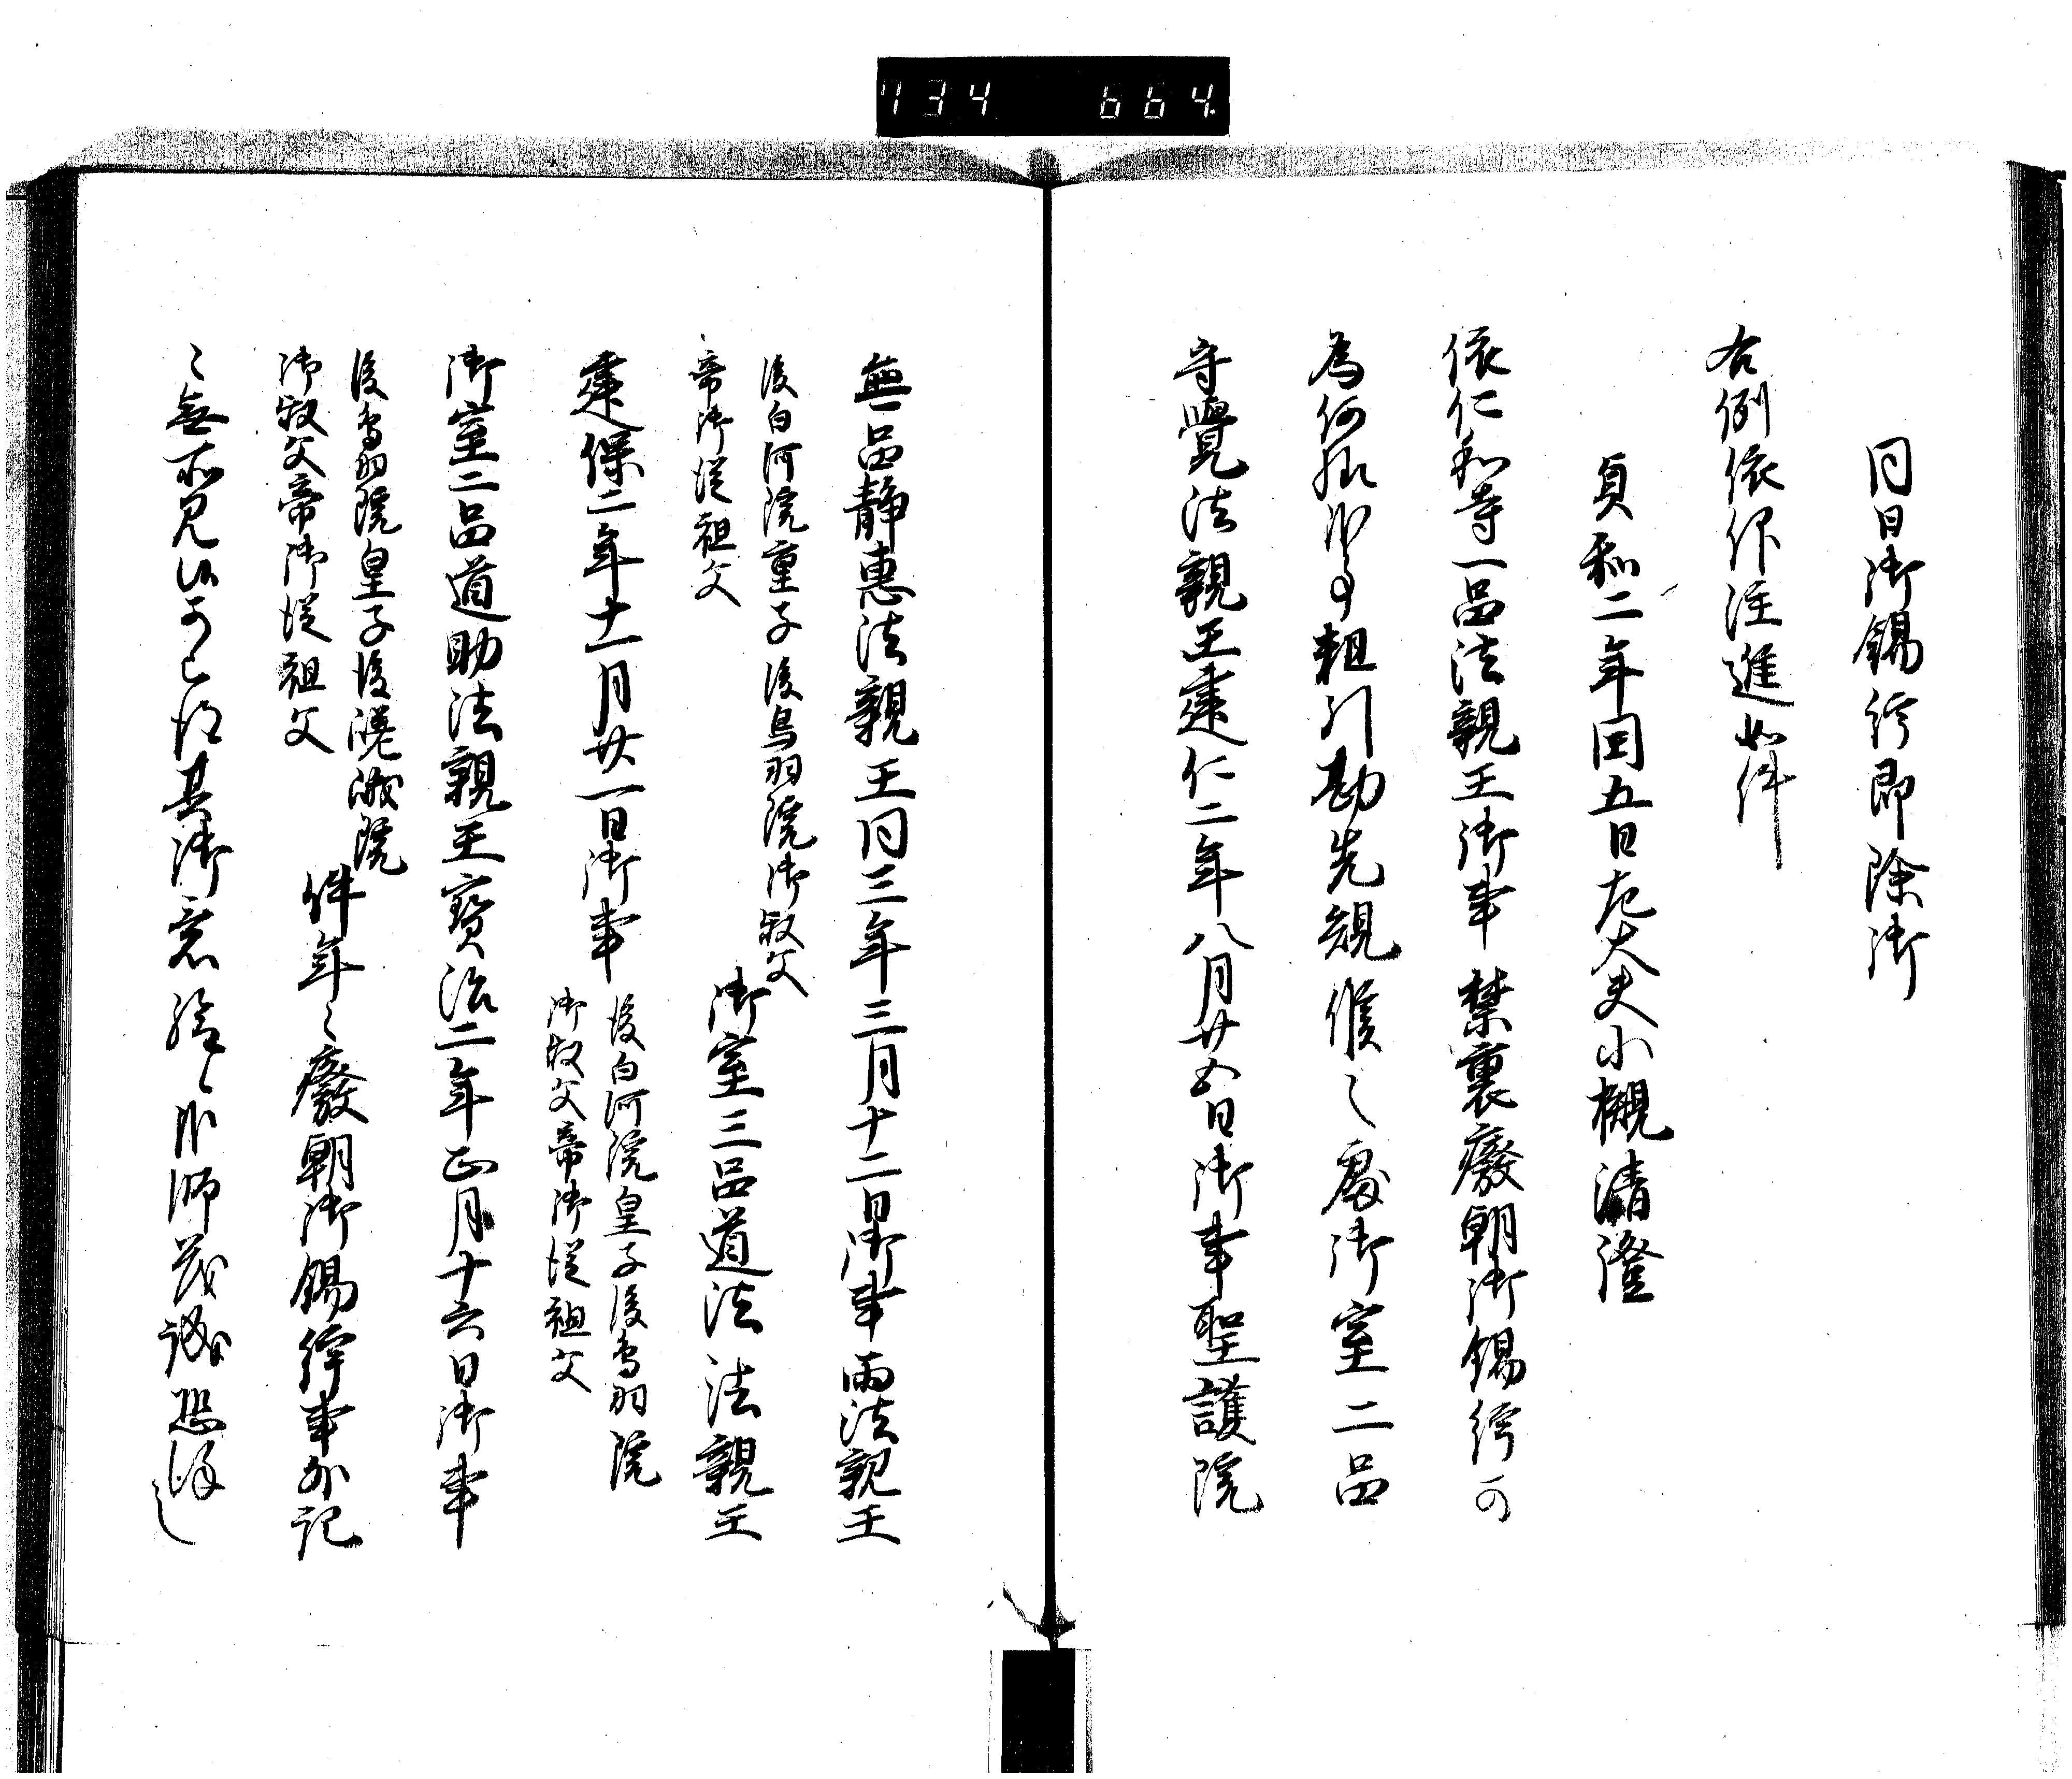 734 664
同日御錫紵即除御
右例依仰注進如件
貞和二年同五日左大史小槻清澄
依仁和寺一品法親王御事 禁裏廢朝御錫紵可
為何様哉事粗引勘先規候之處御室二品
守覺法親王建仁二年八月廿五日御事聖護院
無品静惠法親王同三年三月十二日御事両法親王
後白河院皇子後鳥羽院御叔父
帝御従祖父
御室二品道法法親王
建保二年十一月廿一日御事
後白河院皇子後鳥羽院
御叔父帝御従祖父
御室二品道助法親王寳治二年正月十六日御事
後鳥羽院皇子後嵯峨院
御叔父帝御従祖父
件年々廢朝御錫紵事外記
々無所見候可令得其御意給候師茂誠恐謹言